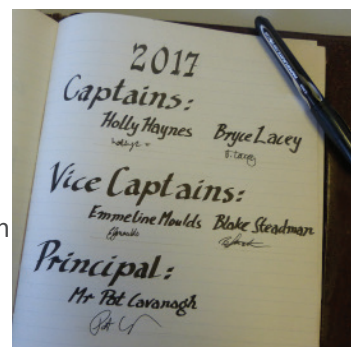 2017
Captains:
Holly Haynes Bryce Lacey
B. Lacey
Vice Captains:
Emmeline Moulds Blake Steadman
Principal:
Mr Pat Cavanagh